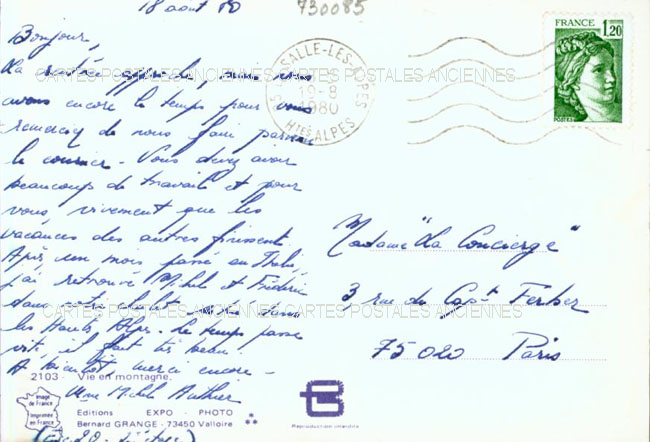 18 août 80
730085
Bonjour,
La rentrée approche, mais nous
avons encore le temps pour vous
remercier de nous faire parvenir
le courrier. Vous devez avoir
beaucoup de travail et pour
vous, vivement que les
vacances des autres finissent.
Après un mois passé en Italie,
j'ai retrouvé Michel et Frédéric
dans notre chalet dans
les Hautes Alpes. Le temps passe
vite, il fait très beau.
A bientôt, merci encore -
Mme Michel
FRANCE
1,20
POSTES
LA SALLE-LES-ALPES
19-8
1980
Htes ALPES
CARTES POSTALES ANCIENNES CARTES POSTALES ANCIENNES
Madame "La Concierge"
3, rue du Capt Ferber
75020 Paris
CARTES POSTALES ANCIENNES CARTES POSTALES ANCIENNES
2103 - Vie en montagne.
Image de France
Imprimée en France
Editions EXPO - PHOTO
Bernard GRANGE - 73450 Valloire
Reproduction interdite